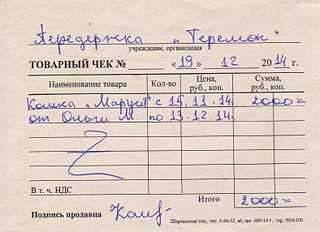 Передержка „Теремок"
учреждение, организация
ТОВАРНЫЙ ЧЕК № «19» 12 2014 г.
Наименование товара Кол-во Цена, руб., коп. Сумма, руб., коп.
Кошка „Маруся" с 15. 11. 14. 2000=
от Ольги М по 13 12 14.
В т. ч. НДС
Итого 2000=
Подпись продавца